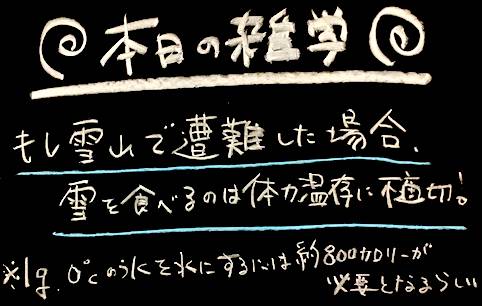 本日の雑学
もし雪山で遭難した場合、
雪を食べるのは体力温存に不適切！
※1g、0℃の氷を水にするには約80カロリーが
必要となるらしい